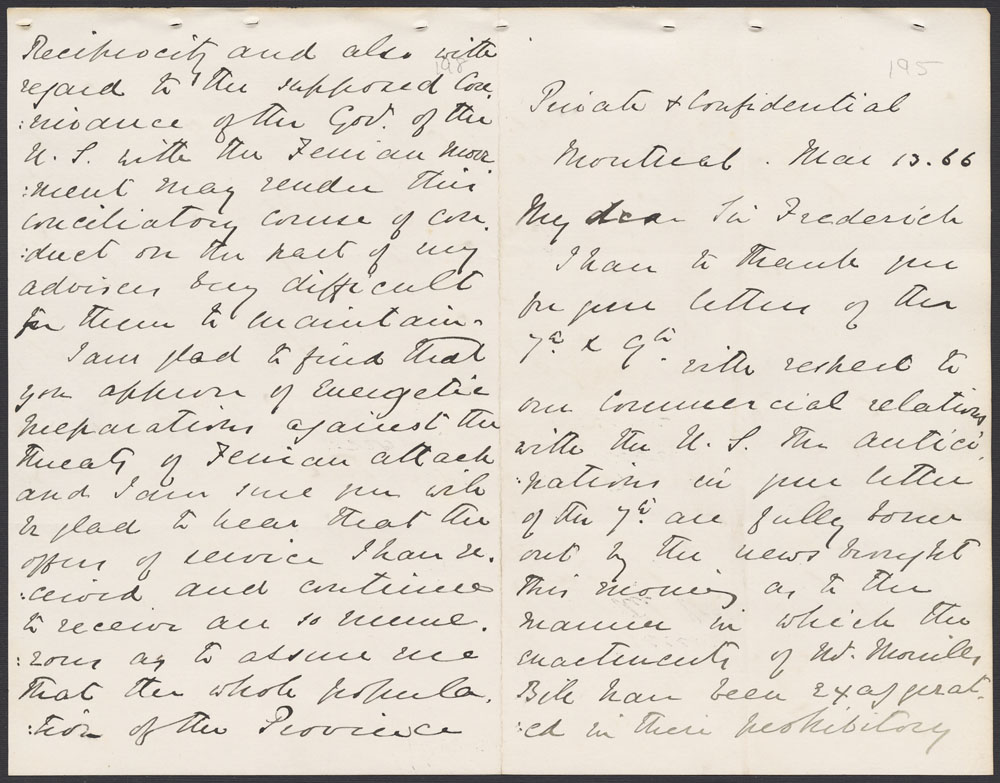 Reciprocity and also with
regard to the supposed Con
:nivance of the Gov.t of the
U. S. with the Fenian Move
:ment may render this
conciliatory course of con
:duct on the part of my
advisers very difficult
for them to maintain.
I am glad to find that
you approve of Energetic
preparations against the
threats of Fenian attack
and I am sure you will
be glad to hear that the
offers of service I have re.
:ceived and continue
to receive are so nume.
:rous as to assure me
that the whole popula.
:tion of the Province
198
195
Private & Confidential
Montreal. Mar 13. 66
My dear Sir Frederick
I have to thank you
for your letters of the
7th & 9th with respect to
our Commercial relations
with the U. S. The antici
:pations in your letter
of the 7th are fully borne
out by the news brought
this morning as to the
manner in which the
enactments of Mr. Morrills
Bill have been exaggerat.
:ed in their prohibitory